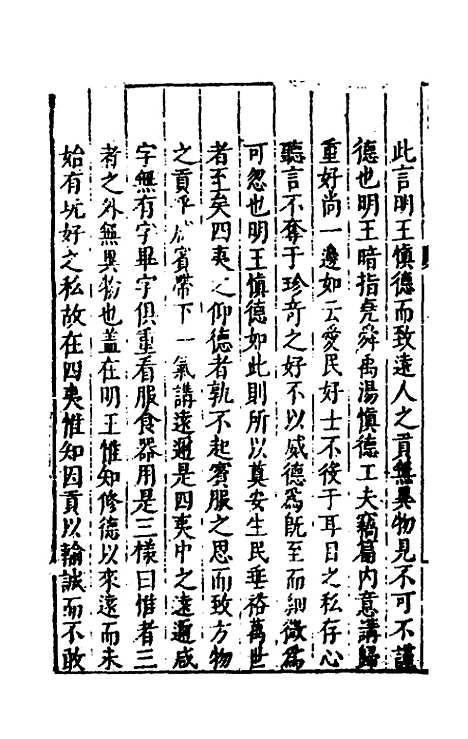 此言明王慎德而致遠人之貢無異物見不可不謹
德也明王暗指堯舜禹湯慎德工夫竊篇内意講歸
重好尚一邊如云愛民好士不役于耳目之私存心
聽言不奪于珍奇之好不以威德為既至而細微為
可忽也明王慎德如此則所以奠安生民垂裕萬世
者至矣四夷之仰德者孰不起賓服之思而致方物
之貢乎咸賓帶下一氣講遠邇是四夷中之遠邇咸
字無有字畢字俱重看服食器用是三樣曰惟者三
者之外無異物也盖在明王惟知修德以來遠而未
始有玩好之私故在四夷惟知因貢以輸誠而不敢